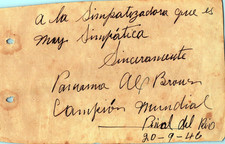 A la Simpatizadora que es
muy Simpática
Sinceramente
Panama Al Brown
Campeón Mundial
Pinal del Rio
20-9-46